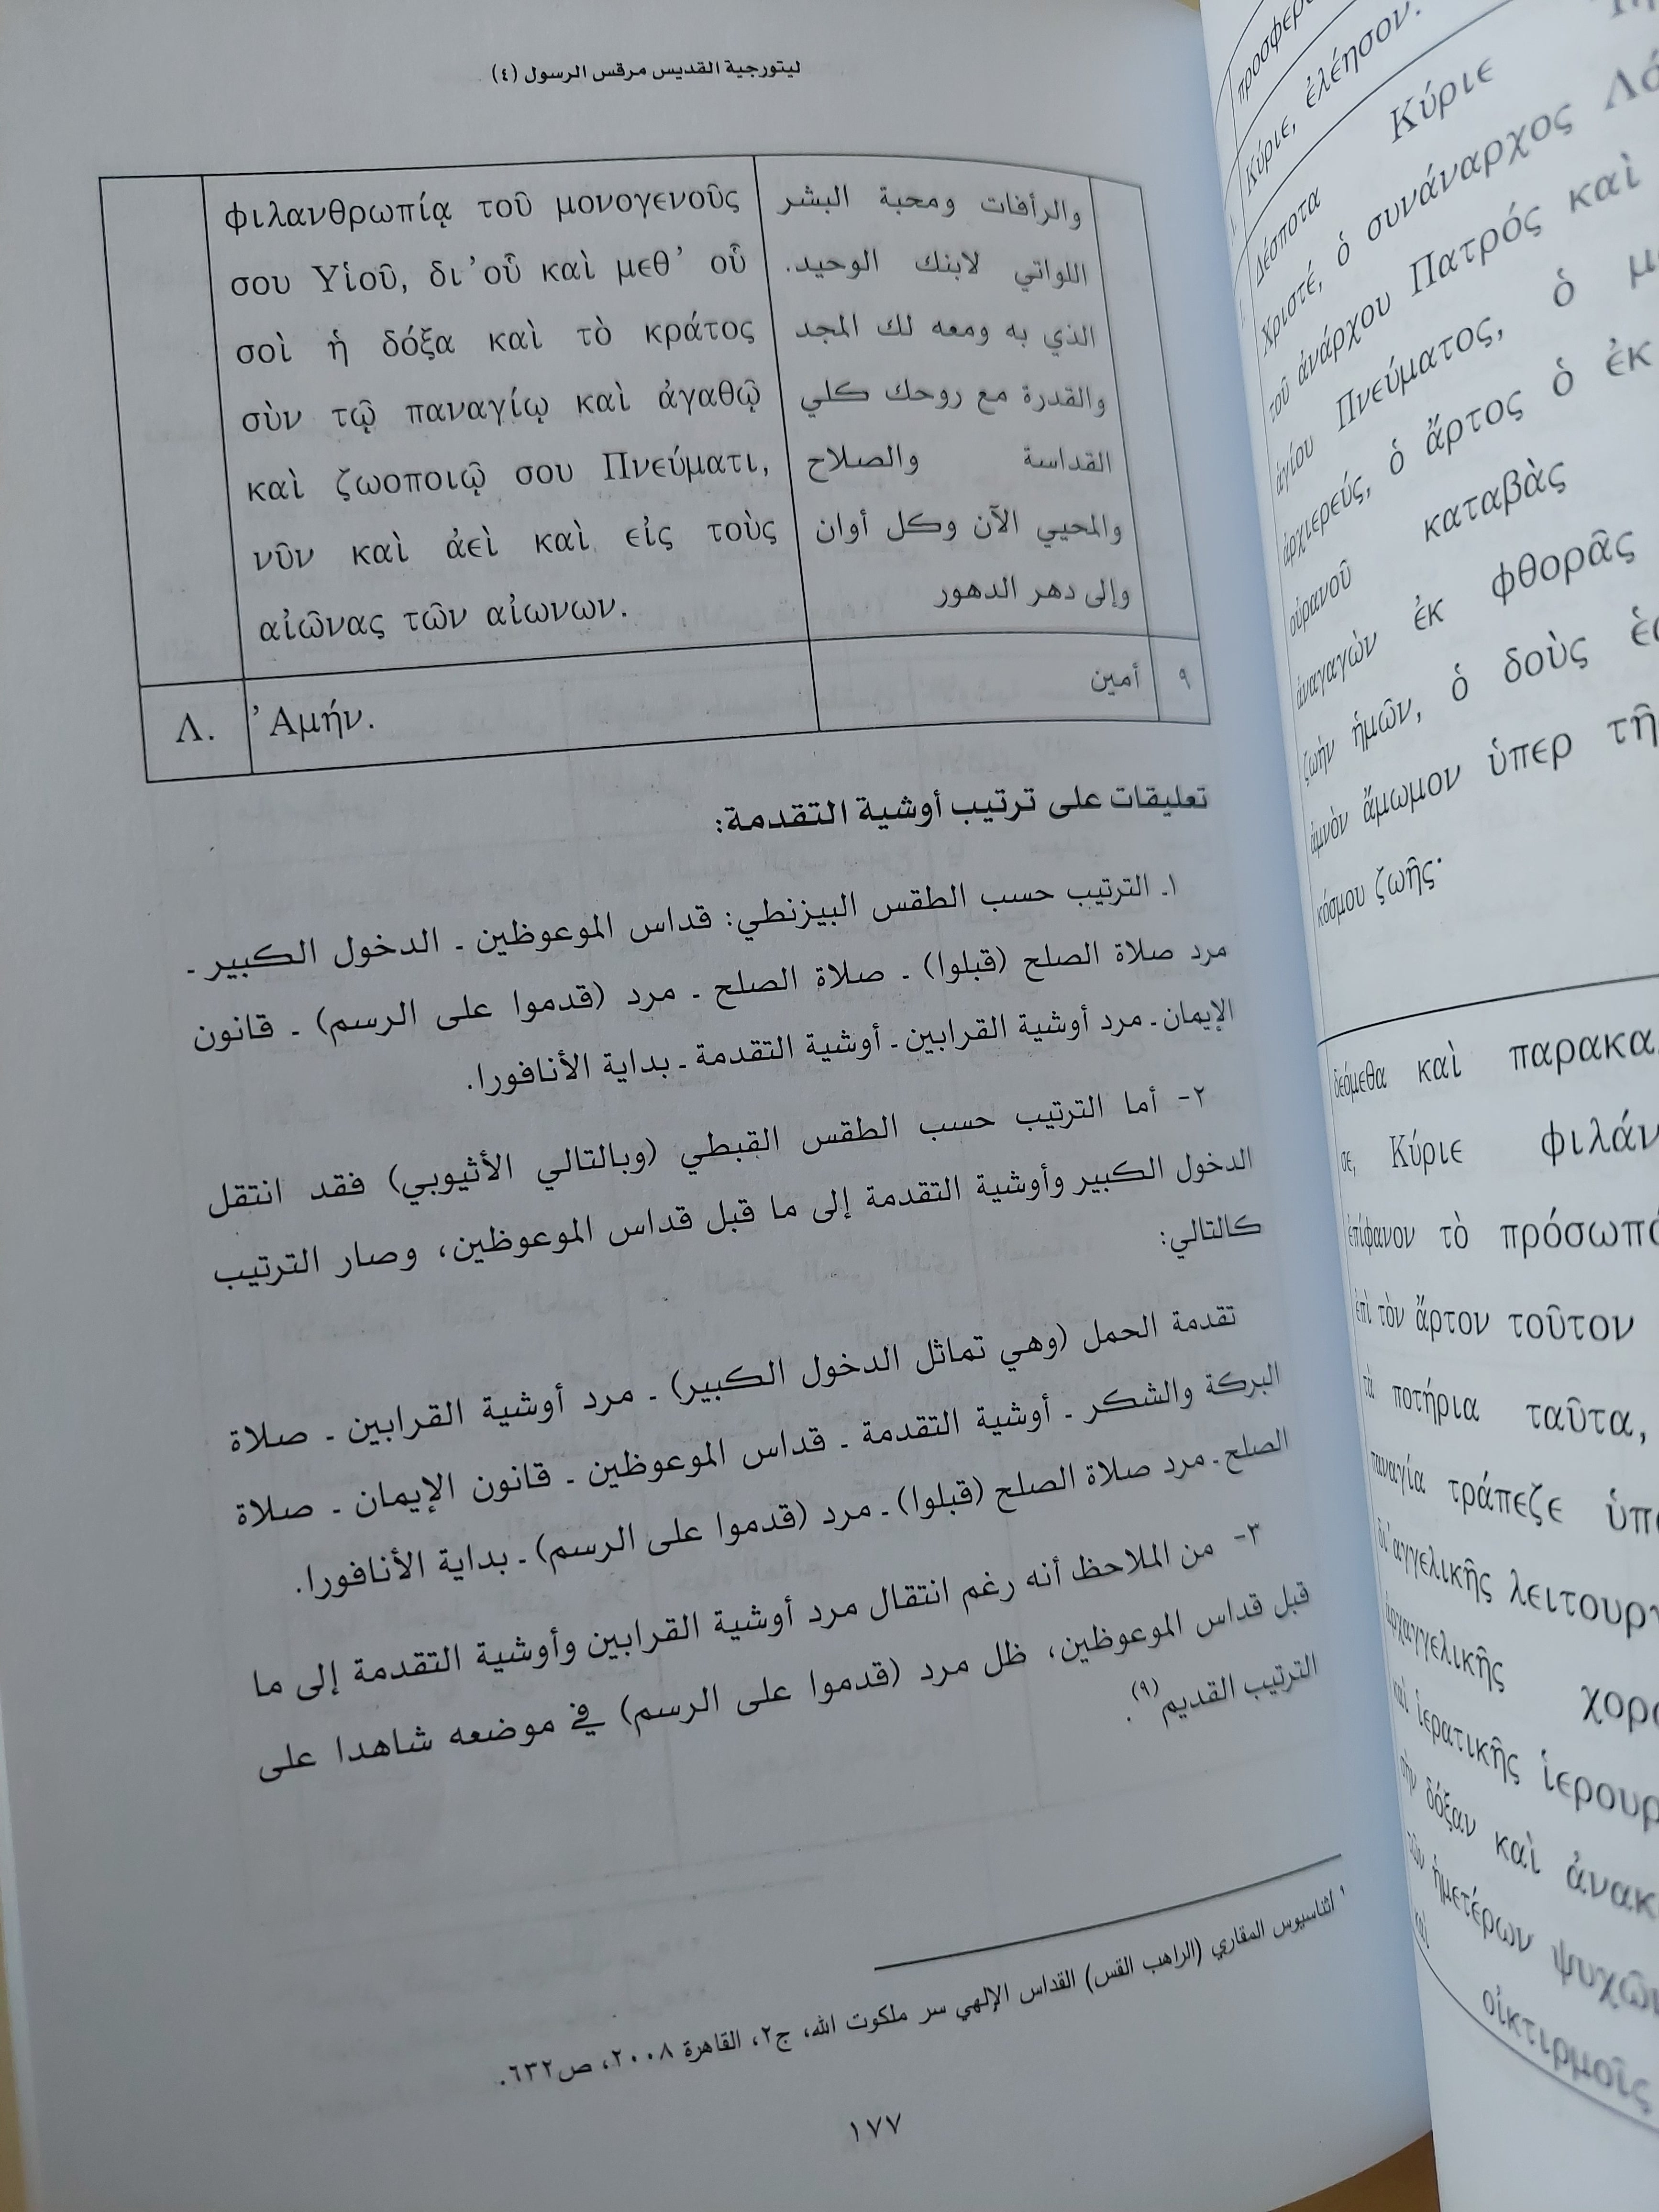 ليتورجية القديس مرقس الرسول (٤)
φιλανθρωπίᾳ τοῦ μονογενοῦς
σου Υἱοῦ, δι᾽οὗ καὶ μεθ᾽ οὗ
σοὶ ἡ δόξα καὶ τὸ κράτος
σὺν τῷ παναγίῳ καὶ ἀγαθῷ
καὶ ζωοποιῷ σου Πνεύματι,
νῦν καὶ ἀεὶ καὶ εἰς τοὺς
αἰῶνας τῶν αἰωνων.
والرأفات ومحبة البشر
اللواتي لابنك الوحيد.
الذي به ومعه لك المجد
والقدرة مع روحك كلي
القداسة والصلاح
والمحيي الآن وكل أوان
وإلى دهر الدهور
Λ. ᾽Αμήν.
أمين ٩
تعليقات على ترتيب أوشية التقدمة:
١ـ الترتيب حسب الطقس البيزنطي: قداس الموعوظين ـ الدخول الكبير ـ
مرد صلاة الصلح (قبلوا) ـ صلاة الصلح ـ مرد (قدموا على الرسم) ـ قانون
الإيمان ـ مرد أوشية القرابين ـ أوشية التقدمة ـ بداية الأنافورا.
٢- أما الترتيب حسب الطقس القبطي (وبالتالي الأثيوبي) فقد انتقل
الدخول الكبير وأوشية التقدمة إلى ما قبل قداس الموعوظين، وصار الترتيب
كالتالي:
تقدمة الحمل (وهي تماثل الدخول الكبير) ـ مرد أوشية القرابين ـ صلاة
البركة والشكر ـ أوشية التقدمة ـ قداس الموعوظين ـ قانون الإيمان ـ صلاة
الصلح ـ مرد صلاة الصلح (قبلوا) ـ مرد (قدموا على الرسم) ـ بداية الأنافورا.
٣- من الملاحظ أنه رغم انتقال مرد أوشية القرابين وأوشية التقدمة إلى ما
قبل قداس الموعوظين، ظل مرد (قدموا على الرسم) في موضعه شاهدا على
الترتيب القديم(٩).
٩ اثناسيوس المقاري (الراهب القس) القداس الإلهي سر ملكوت الله، ج٢، القاهرة ٢٠٠٨، ص٦٣٢.
١٧٧
Κύριε, ἐλέησον.
Δέσποτα Κύριε
Χριστέ, ὁ συνάναρχος
τοῦ ἀνάρχου Πατρός καὶ
ἁγίου Πνεύματος, ὁ
ἀρχιερεύς, ὁ ἄρτος ὁ ἐκ
οὐρανοῦ καταβὰς
ἀναγαγὼν ἐκ φθορᾶς
ζωὴν ἡμῶν, ὁ δοὺς
ἀμνὸν ἄμωμον ὑπερ τῆ
κόσμου ζωῆς·
δεόμεθα καὶ
σε, Κύριε
ἐπίφανον τὸ
ἐπὶ τὸν ἄρτον τοῦτον
τὰ ποτήρια ταῦτα,
παναγία τράπεζε
δι᾽ἀγγελικῆς
ἀρχαγγελικῆς
καὶ ἱερατικῆς
δόξαν καὶ
ἡμετέρων
οἰκτιρμοῖς